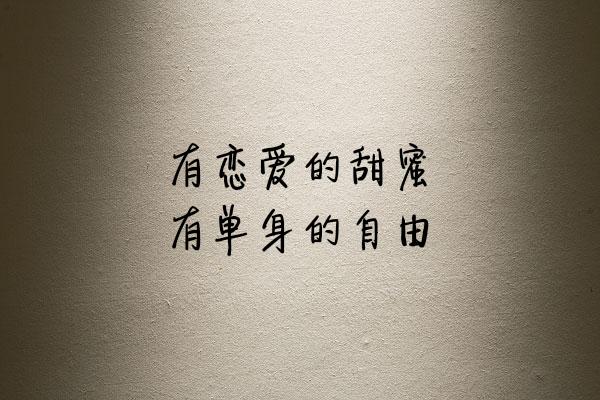 有恋爱的甜蜜
有单身的自由